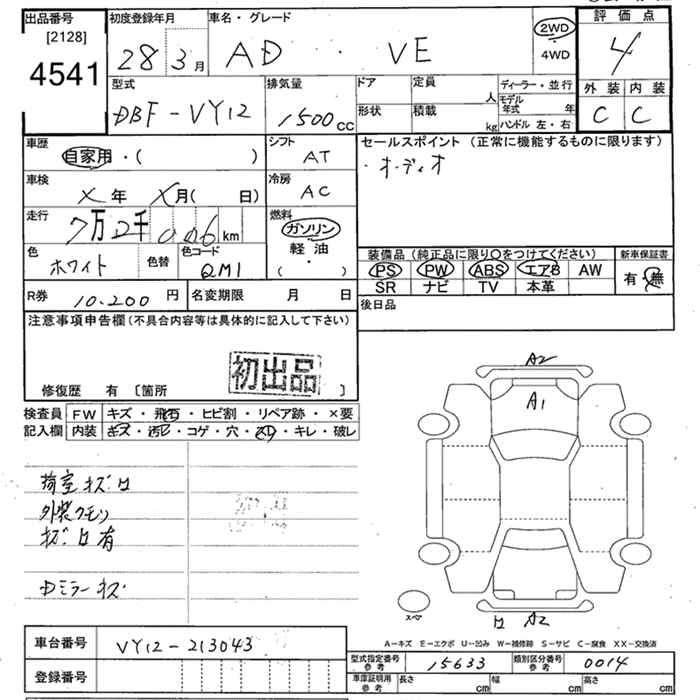 出品番号 初度登録年月 車名・グレード 2WD 評価点
[2128] 28 3月 AD VE 4WD 4
4541
型式 排気量 ドア 定員 人 ディーラー・並行 外装 内装
DBF-VY12 1500cc 形状 積載 kg モデル年式 年 C C
ハンドル 左・右
車歴 シフト セールスポイント (正常に機能するものに限ります)
自家用・( ) AT ・オーディオ
車検 冷房
X年 X月( 日) AC
走行 燃料
7万2千006km ガソリン
軽油
色 色替 色コード ・
ホワイト QM1 ( )
装備品 (純正品に限り○をつけてください) 新車保証書
PS PW ABS エアB AW 有・無
SR ナビ TV 本革
R券 10.200円 名変期限 月 日
後日品
注意事項申告欄(不具合内容等は具体的に記入して下さい)
初出品
修復歴 有 〔箇所 〕
検査員 FW キズ・飛石・ヒビ割・リペア跡・×要
記入欄 内装 キズ・汚レ・コゲ・穴・・キレ・破レ
A2
A1
荷室キズロ
外装クモリ
キズロ有
ミラーキズ
スペア
ロ A2
A-キズ E-エクボ U-凹み W-補修跡 S-サビ C-腐食 XX-交換済
車台番号 VY12-213043
型式指定番号 参考 15633 類別区分番号 参考 0014
登録番号
車庫証明用 参考 長さ cm 幅 cm 高さ cm